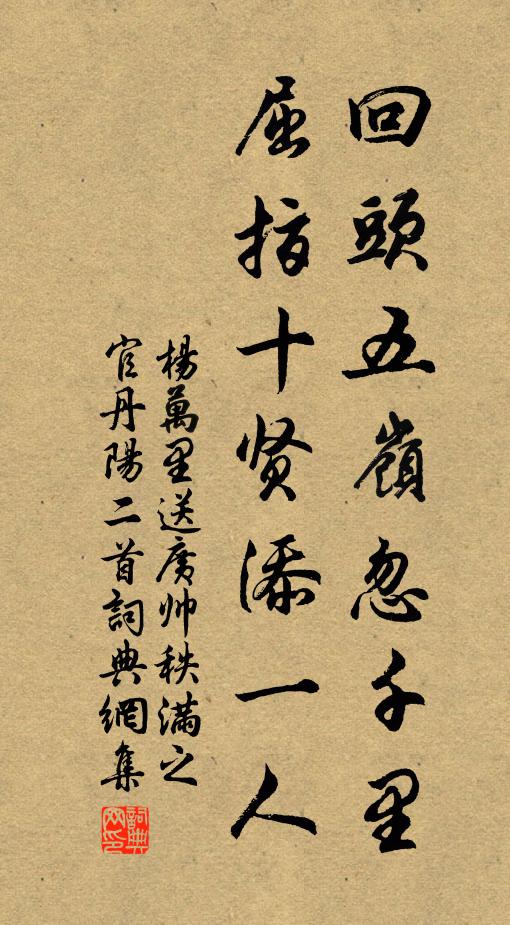 回頭五嶺忽千里
屈指十贤添一人
楊萬里送廣帅秩滿之
官丹陽二首詞典網集
詞典网印